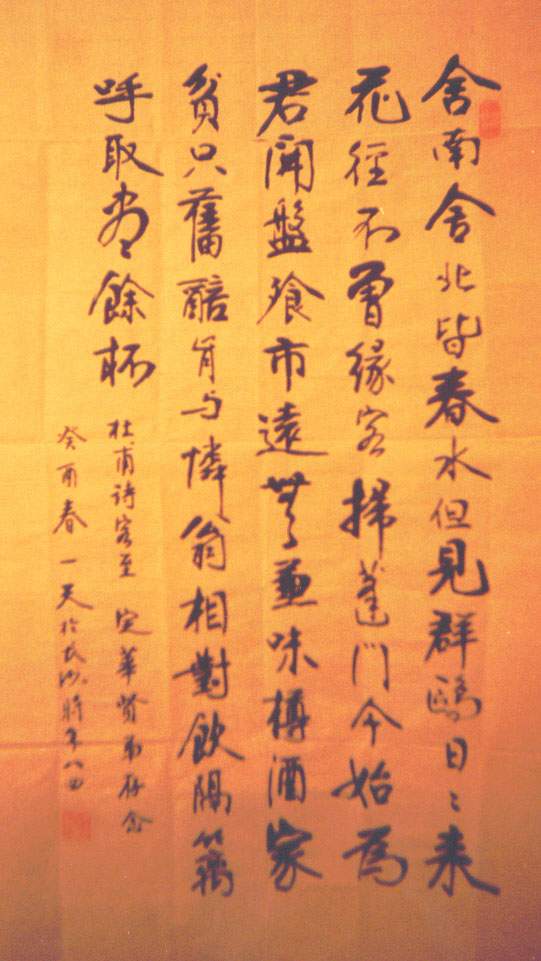 舍南舍北皆春水但見群鷗日〻来
花徑不曾緣客掃蓬門今始為
君開盤飧市遠無兼味樽酒家
貧只舊醅肯与憐翁相對飲隔籬
呼取盡餘杯
杜甫詩客至 定華贤弟存念
癸酉春一天於長沙時年八四